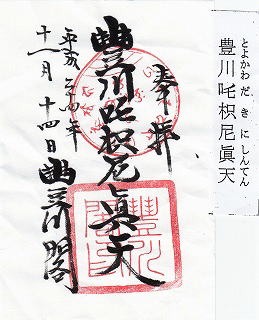 とよかわ だ き に しんてん
豊川吒枳尼眞天
奉拝
豐川吒枳尼眞天
平成二十四年
十一月十四日 豐川閣
豐川閣印